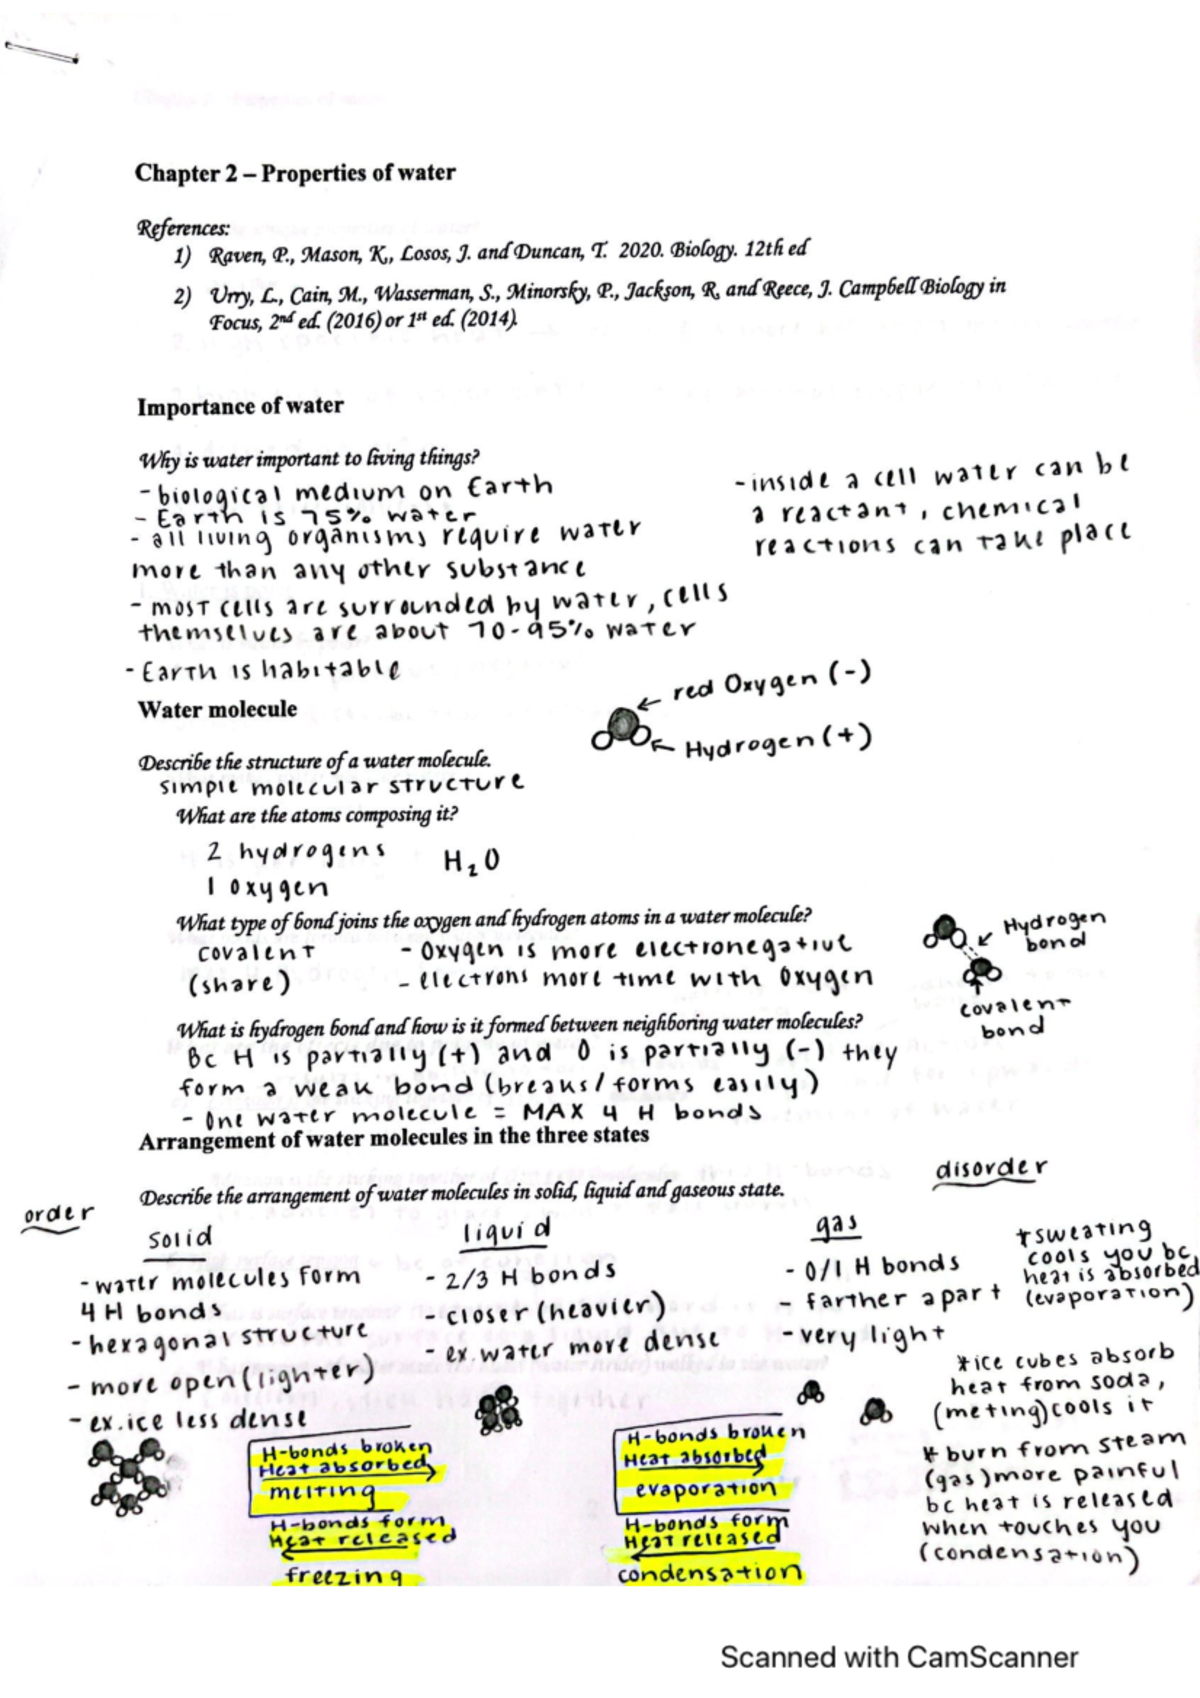 Chapter 2 – Properties of water
References:
1) Raven, P., Mason, K., Losos, J. and Duncan, T. 2020. Biology. 12th ed
2) Urry, L., Cain, M., Wasserman, S., Minorsky, P., Jackson, R. and Reece, J. Campbell Biology in
Focus, 2nd ed. (2016) or 1st ed. (2014).
Importance of water
Why is water important to living things?
- biological medium on Earth
- Earth is 75% water
- all living organisms require water
more than any other substance
- most cells are surrounded by water, cells
themselves are about 70-95% water
- Earth is habitable
- inside a cell water can be
a reactant, chemical
reactions can take place
Water molecule
red Oxygen (-)
Hydrogen (+)
Describe the structure of a water molecule.
simple molecular structure
What are the atoms composing it?
2 hydrogens
1 oxygen
H₂O
What type of bond joins the oxygen and hydrogen atoms in a water molecule?
covalent
(share)
- Oxygen is more electronegative
- electrons more time with Oxygen
Hydrogen
bond
covalent
bond
What is hydrogen bond and how is it formed between neighboring water molecules?
Bc H is partially (+) and O is partially (-) they
form a weak bond (breaks/forms easily)
- One water molecule = MAX 4 H bonds
Arrangement of water molecules in the three states
Describe the arrangement of water molecules in solid, liquid and gaseous state.
order
disorder
solid
- water molecules form
4 H bonds
- hexagonal structure
- more open (lighter)
- ex. ice less dense
liquid
- 2/3 H bonds
- closer (heavier)
- ex. water more dense
gas
- 0/1 H bonds
- farther apart
- very light
*sweating
cools you bc
heat is absorbed
(evaporation)
*ice cubes absorb
heat from soda,
(meting) cools it
* burn from steam
(gas) more painful
bc heat is released
when touches you
(condensation)
H-bonds broken
Heat absorbed
melting
H-bonds form
Heat released
freezing
H-bonds broken
Heat absorbed
evaporation
H-bonds form
Heat released
condensation
Scanned with CamScanner